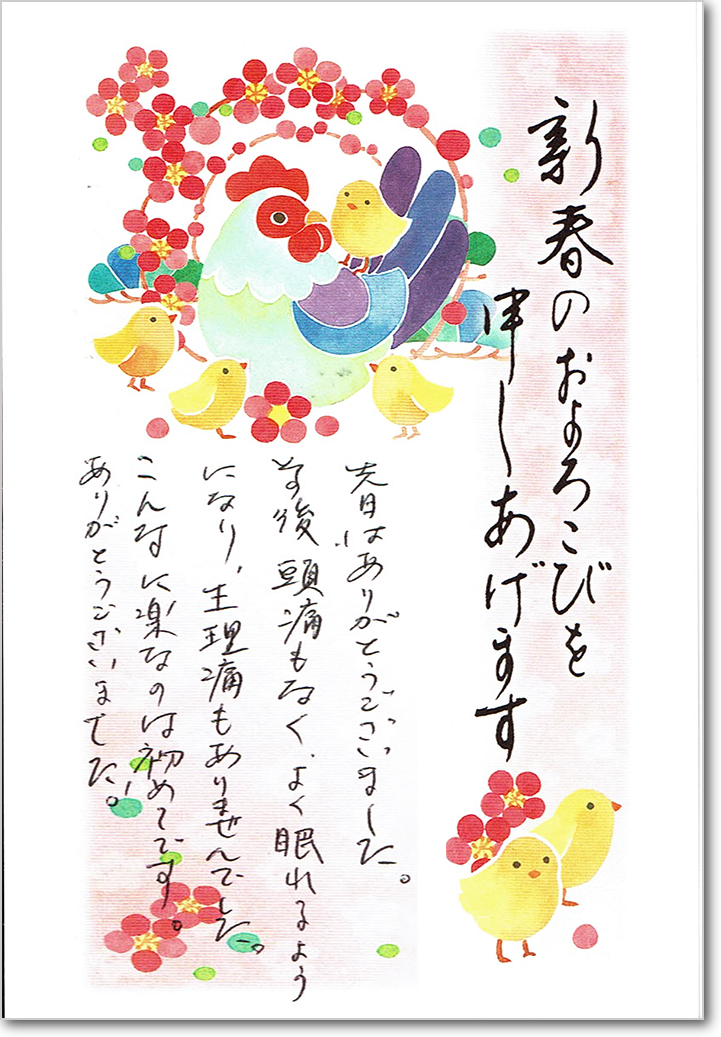 新春のおよろこびを
申しあげます
先日はありがとうございました。
その後頭痛もなく、よく眠れるよう
になり、生理痛もありませんでした。
こんなに楽なのは初めてです。
ありがとうございました。